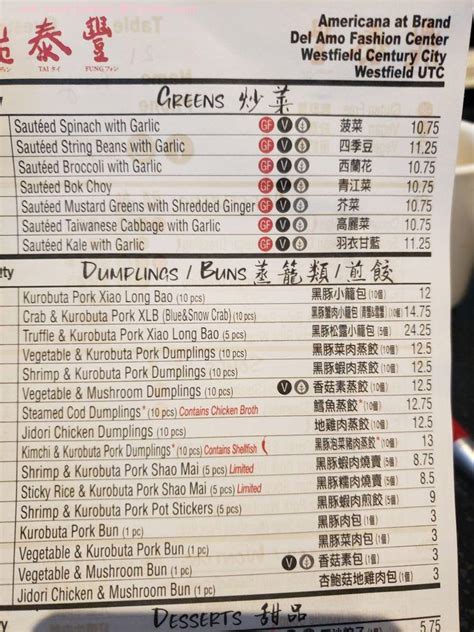 泰豐
TAI タイ FUNG フォン
Americana at Brand
Del Amo Fashion Center
Westfield Century City
Westfield UTC
GREENS 炒菜
Sautéed Spinach with Garlic GF V 菠菜 10.75
Sautéed String Beans with Garlic GF V 四季豆 11.25
Sautéed Broccoli with Garlic GF V 西蘭花 10.75
Sautéed Bok Choy GF V 青江菜 10.75
Sautéed Mustard Greens with Shredded Ginger GF V 芥菜 10.75
Sautéed Taiwanese Cabbage with Garlic GF V 高麗菜 10.75
Sautéed Kale with Garlic GF V 羽衣甘藍 11.25
DUMPLINGS / BUNS 蒸籠類/煎餃
Kurobuta Pork Xiao Long Bao (10 pcs) 黑豚小籠包 (10個) 12
Crab & Kurobuta Pork XLB (Blue&Snow Crab) (10 pcs) 黑豚蟹肉小籠包 14.75
Truffle & Kurobuta Pork Xiao Long Bao (5 pcs) 黑豚松露小籠包 (5個) 24.25
Vegetable & Kurobuta Pork Dumplings (10 pcs) 黑豚菜肉蒸餃 (10個) 12.5
Shrimp & Kurobuta Pork Dumplings (10 pcs) 黑豚蝦肉蒸餃 (10個) 12.5
Vegetable & Mushroom Dumplings (10 pcs) V 香菇素蒸餃 (10個) 12.5
Steamed Cod Dumplings* (10 pcs) Contains Chicken Broth 鱈魚蒸餃* (10個) 12.75
Jidori Chicken Dumplings (10 pcs) 地雞肉蒸餃 (10個) 12.5
Kimchi & Kurobuta Pork Dumplings* (10 pcs) Contains Shellfish 黑豚泡菜豬肉蒸餃* (10個) 13
Shrimp & Kurobuta Pork Shao Mai (5 pcs) Limited 黑豚蝦肉燒賣 (5個) 8.75
Sticky Rice & Kurobuta Pork Shao Mai (5 pcs) Limited 黑豚糯肉燒賣 (5個) 5.75
Shrimp & Kurobuta Pork Pot Stickers (5 pcs) 黑豚蝦肉煎餃 (5個) 9
Kurobuta Pork Bun (1 pc) 黑豚肉包 (1個) 3
Vegetable & Kurobuta Pork Bun (1 pc) 黑豚菜肉包 (1個) 3
Vegetable & Mushroom Bun (1 pc) V 香菇素包 (1個) 3
Jidori Chicken & Mushroom Bun (1 pc) 杏鮑菇地雞肉包 (1個) 3
DESSERTS 甜品
5.75